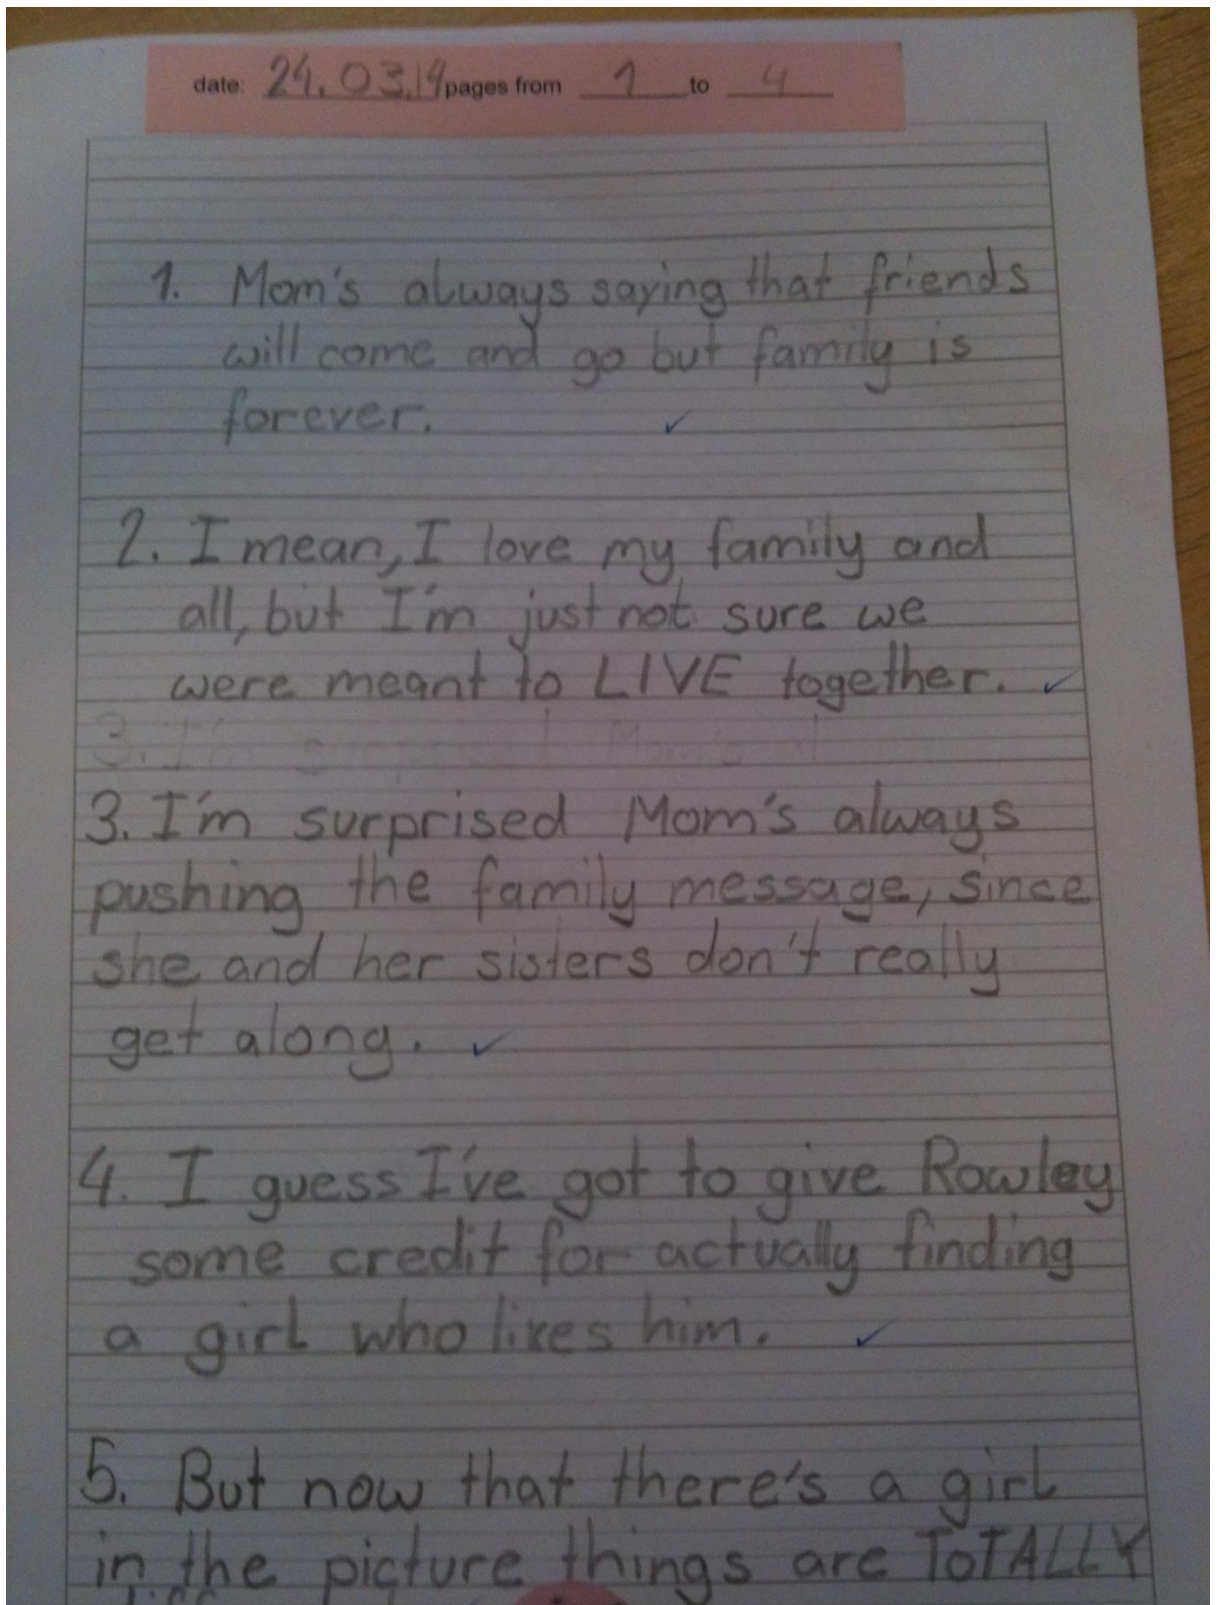 date: 24.03.14 pages from 1 to 4
1. Mom's always saying that friends
will come and go but family is
forever.
2. I mean, I love my family and
all, but I'm just not sure we
were meant to LIVE together.
3. I'm surprised Mom's al
3. I'm surprised Mom's always
pushing the family message, since
she and her sisters don't really
get along.
4. I guess I've got to give Rowley
some credit for actually finding
a girl who likes him.
5. But now that there's a girl
in the picture things are ToTALLY